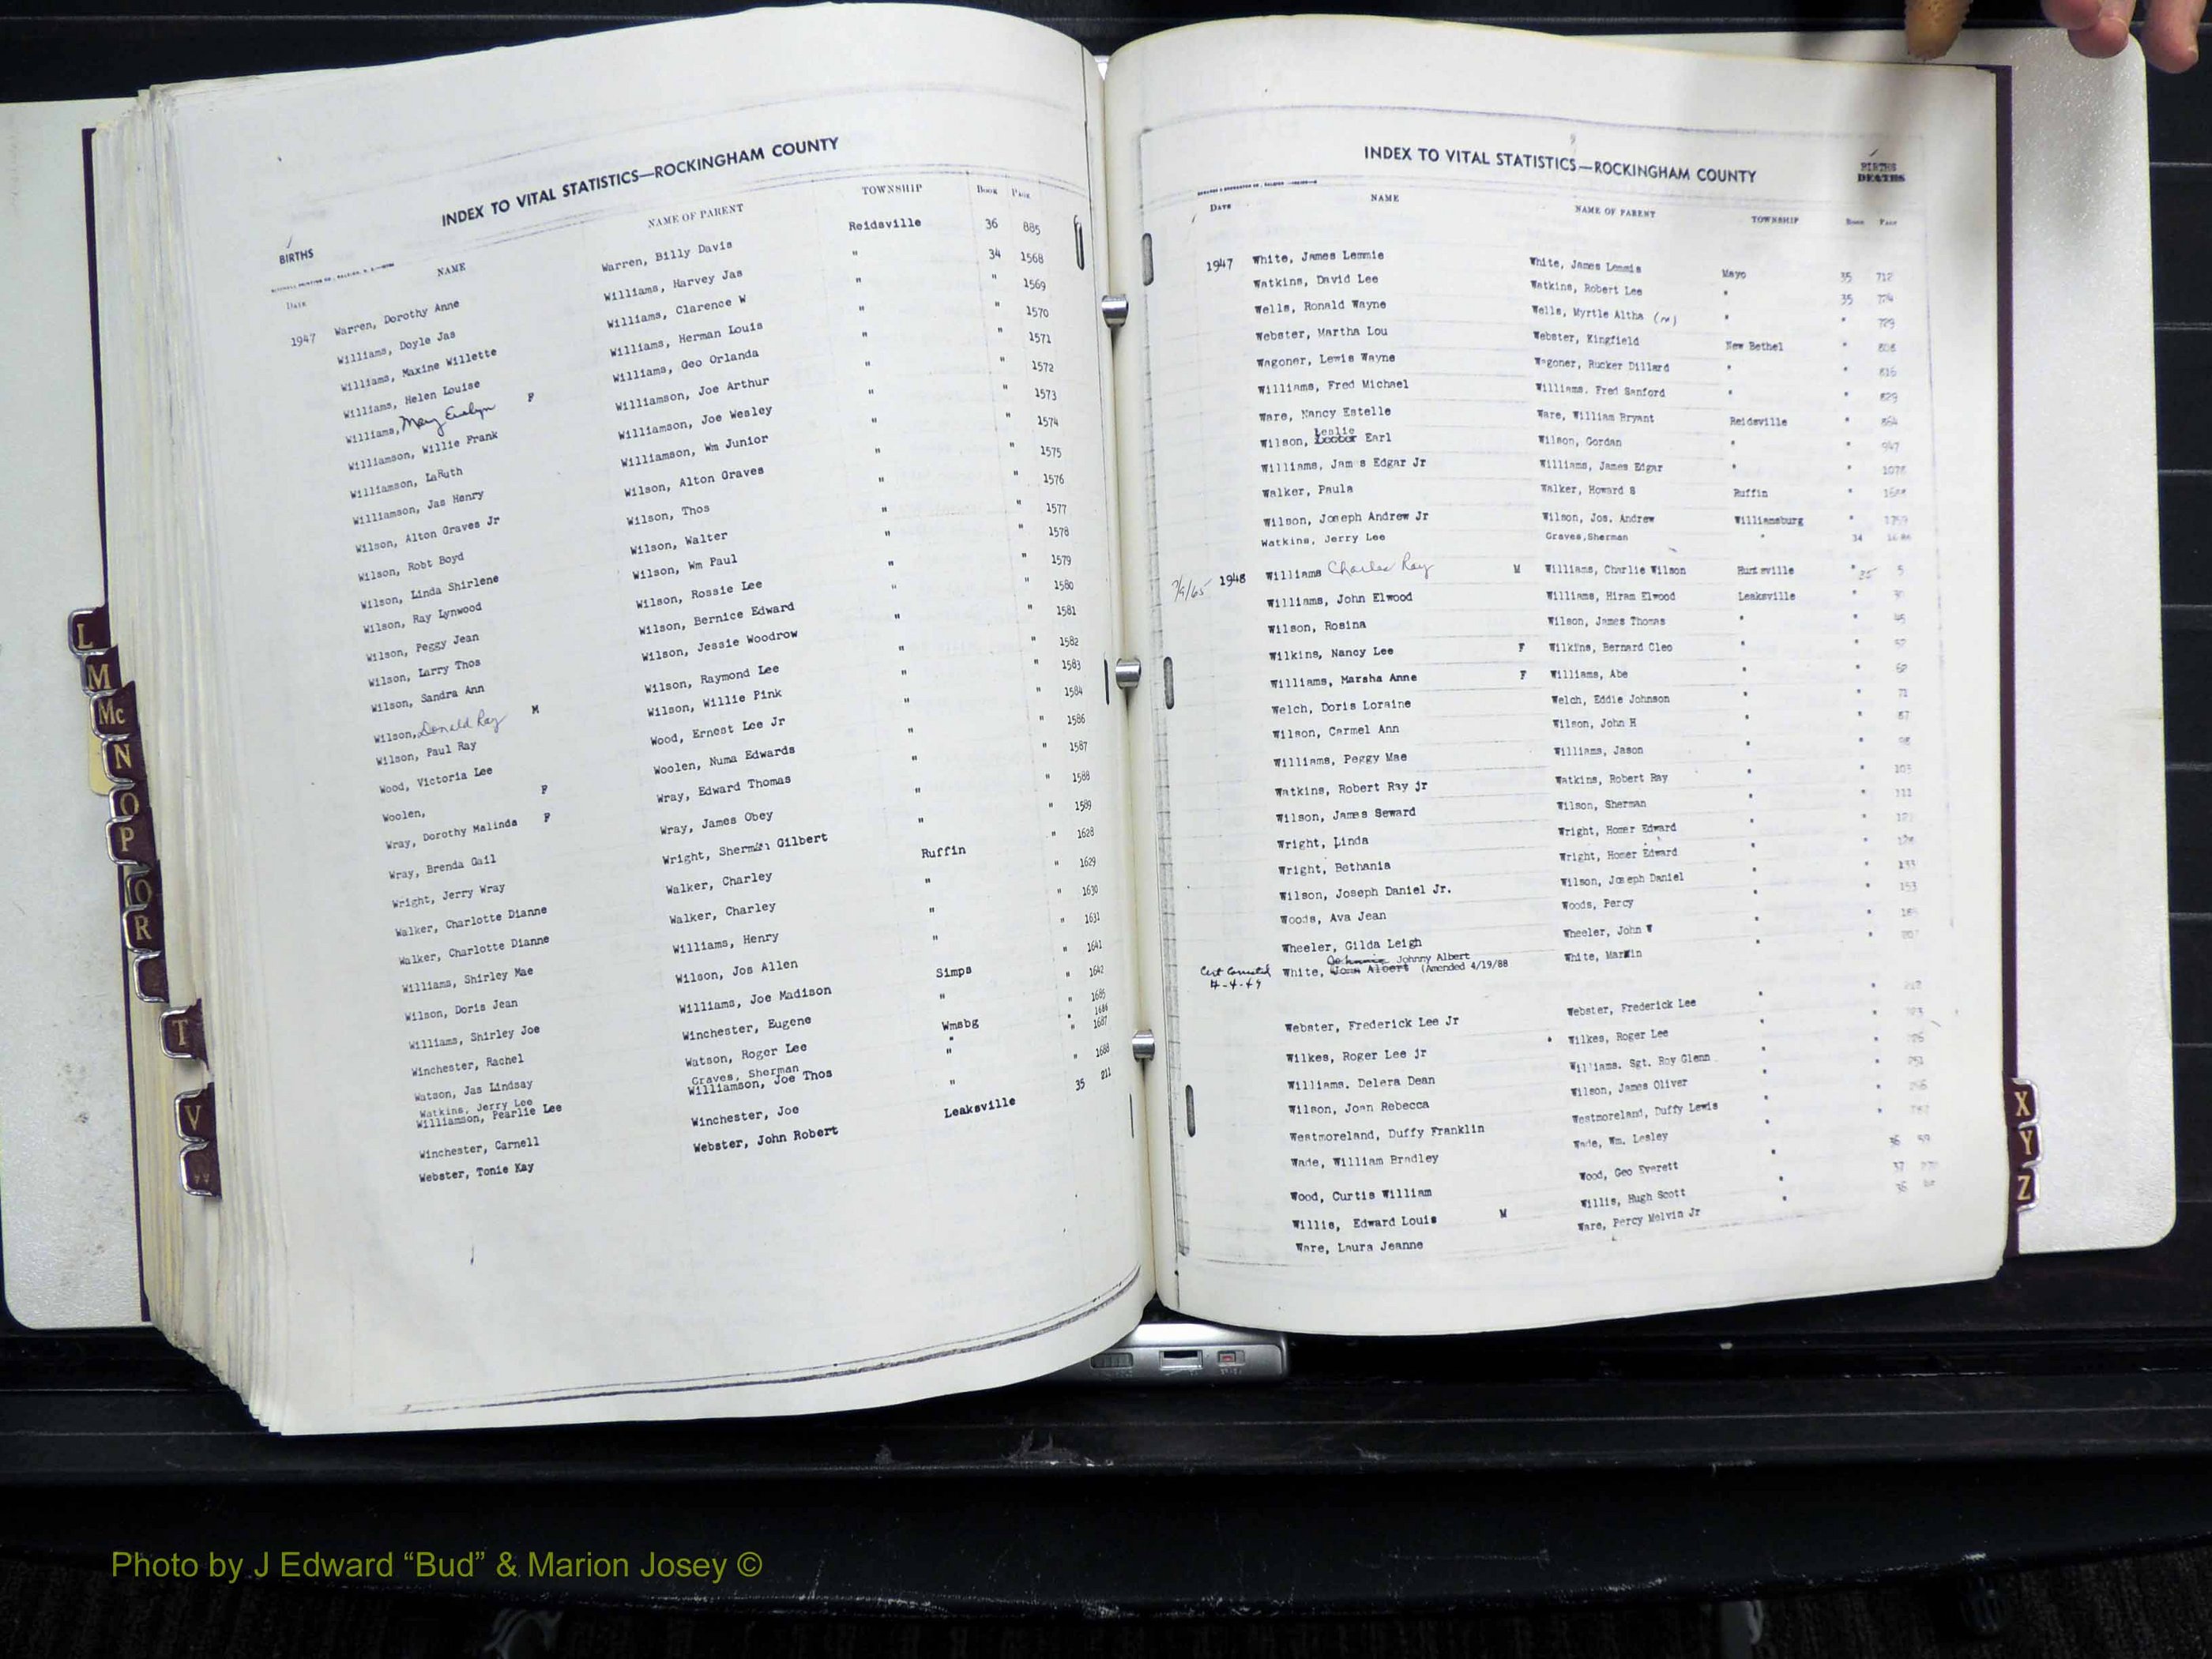 INDEX TO VITAL STATISTICS—ROCKINGHAM COUNTY
BIRTHS
DATE NAME NAME OF PARENT TOWNSHIP Book Page
1947 Warren, Dorothy Anne Warren, Billy Davis Reidsville 36 885
Williams, Doyle Jas Williams, Harvey Jas " 34 1568
Williams, Maxine Willette Williams, Clarence W " " 1569
Williams, Helen Louise Williams, Herman Louis " " 1570
Williams, May Evelyn F Williams, Geo Orlanda " " 1571
Williamson, Willie Frank Williamson, Joe Arthur " " 1572
Williamson, LaRuth Williamson, Joe Wesley " " 1573
Williamson, Jas Henry Williamson, Wm Junior " " 1574
Wilson, Alton Graves Jr Wilson, Alton Graves " " 1575
Wilson, Robt Boyd Wilson, Thos " " 1576
Wilson, Linda Shirlene Wilson, Walter " " 1577
Wilson, Ray Lynwood Wilson, Wm Paul " " 1578
Wilson, Peggy Jean Wilson, Rossie Lee " " 1579
Wilson, Larry Thos Wilson, Bernice Edward " " 1580
Wilson, Sandra Ann Wilson, Jessie Woodrow " " 1581
Wilson, Donald Ray M Wilson, Raymond Lee " " 1582
Wilson, Paul Ray Wilson, Willie Pink " " 1583
Wood, Victoria Lee Wood, Ernest Lee Jr " " 1584
Woolen, F Woolen, Numa Edwards " " 1586
Wray, Dorothy Malinda F Wray, Edward Thomas " " 1587
Wray, Brenda Gail Wray, James Obey " " 1588
Wright, Jerry Wray Wright, Sherman Gilbert " " 1589
Walker, Charlotte Dianne Walker, Charley Ruffin " 1628
Walker, Charlotte Dianne Walker, Charley " " 1629
Williams, Shirley Mae Williams, Henry " " 1630
Wilson, Doris Jean Wilson, Jos Allen " " 1631
Williams, Shirley Joe Williams, Joe Madison Simps " 1641
Winchester, Rachel Winchester, Eugene " " 1642
Watson, Jas Lindsay Watson, Roger Lee Wmsbg " 1685
Watkins, Jerry Lee Graves, Sherman " " 1686
Williamson, Pearlie Lee Williamson, Joe Thos " " 1687
Winchester, Carnell Winchester, Joe " " 1688
Webster, Tonie Kay Webster, John Robert Leaksville 35 211
INDEX TO VITAL STATISTICS—ROCKINGHAM COUNTY
BIRTHS
DEATHS
DATE NAME NAME OF PARENT TOWNSHIP Book Page
1947 White, James Lemmie White, James Lemmie Mayo 35 712
Watkins, David Lee Watkins, Robert Lee " 35 724
Wells, Ronald Wayne Wells, Myrtle Altha (m) " " 729
Webster, Martha Lou Webster, Kingfield New Bethel "
Wagoner, Lewis Wayne Wagoner, Rucker Dillard " " 816
Williams, Fred Michael Williams. Fred Sanford " " 829
Ware, Nancy Estelle Ware, William Bryant Reidsville " 864
Wilson, Leslie Earl Wilson, Gordan " " 947
Williams, James Edgar Jr Williams, James Edgar " " 1076
Walker, Paula Walker, Howard S Ruffin "
Wilson, Joseph Andrew Jr Wilson, Jos. Andrew Williamsburg "
Watkins, Jerry Lee Graves, Sherman " 34
7/9/65 1948 Williams Charles Ray M Williams, Charlie Wilson Huntsville " 35 5
Williams, John Elwood Williams, Hiram Elwood Leaksville "
Wilson, Rosina Wilson, James Thomas " "
Wilkins, Nancy Lee F Wilkins, Bernard Cleo " "
Williams, Marsha Anne F Williams, Abe " "
Welch, Doris Loraine Welch, Eddie Johnson " " 71
Wilson, Carmel Ann Wilson, John H " " 87
Williams, Peggy Mae Williams, Jason " "
Watkins, Robert Ray jr Watkins, Robert Ray " "
Wilson, James Seward Wilson, Sherman " "
Wright, Linda Wright, Homer Edward " "
Wright, Bethania Wright, Homer Edward " "
Wilson, Joseph Daniel Jr. Wilson, Joseph Daniel " " 133
Woods, Ava Jean Woods, Percy " " 153
Wheeler, Gilda Leigh Wheeler, John W " "
Cert Corrected 4-4-49 White, Johnnie John Albert Johnny Albert (Amended 4/19/88 White, Martin " "
Webster, Frederick Lee Jr Webster, Frederick Lee " "
Wilkes, Roger Lee jr Wilkes, Roger Lee "
Williams. Delera Dean Williams. Sgt. Roy Glenn "
Wilson, Joan Rebecca Wilson, James Oliver " "
Westmoreland, Duffy Franklin Westmoreland, Duffy Lewis " "
Wade, William Bradley Wade, Wm. Lesley " "
Wood, Curtis William Wood, Geo Everett " 36 59
Willis, Edward Louis M Willis, Hugh Scott " 37
Ware, Laura Jeanne Ware, Percy Melvin Jr " 36
L
M
Mc
N
O
P
Q
R
T
V
W
X
Y
Z
Photo by J Edward “Bud” & Marion Josey ©